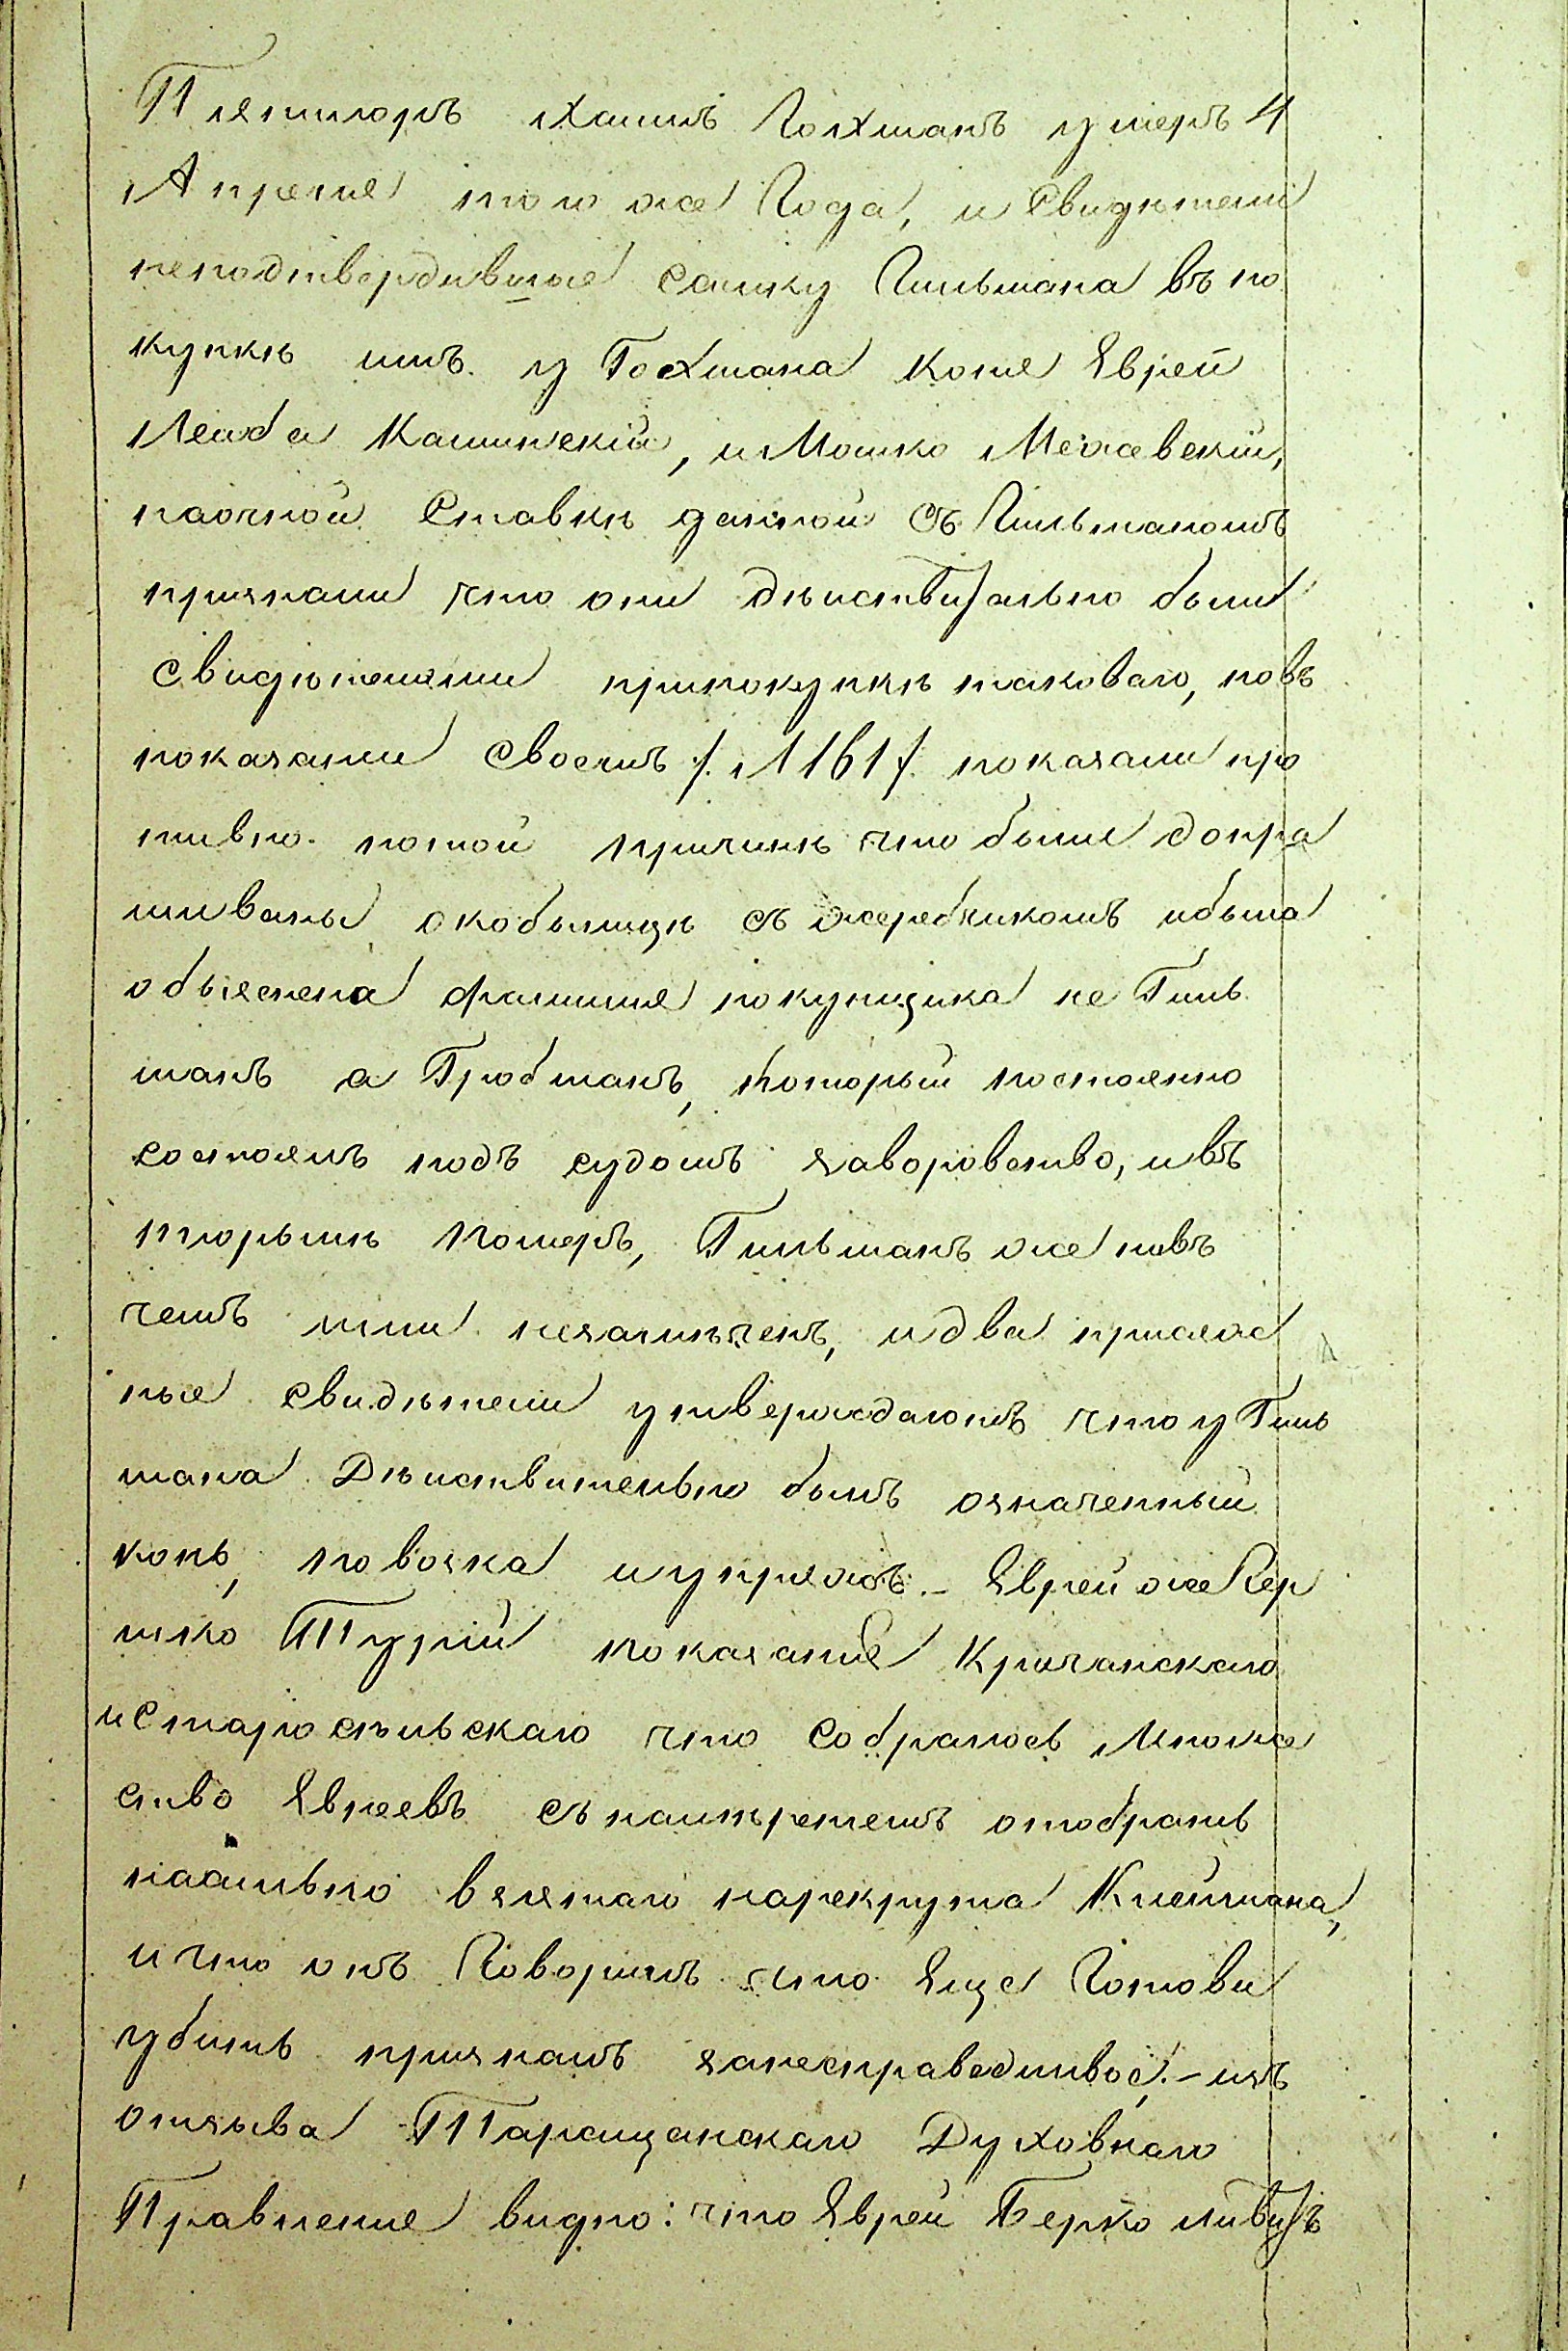 Пятигоръ Хаимъ Гохманъ умеръ 4
Апреля того же Года, и Свидѣтели
неподтвердившие Ссылку Гильмана въ по
купкѣ имъ у Гохмана Коня Еврей
Лейба Камински, и Мошко Межевский,
наочной Ставкѣ данной Съ Гильманомъ
признали что они дѣиствительно были
Свидѣтелями припокупкѣ таковаго, новъ
показании своемъ /. л 161 /. показали про
тивно потой причинѣ что были допра
шиваны окобылицѣ съ жеребчикомъ ибыла
объяснена фамилия покупщика не Гиль
манъ а Гробманъ, который постоянно
состоялъ подъ судомъ заворовство, ивъ
тюрьмѣ Померъ, Гильманъ же невъ
чемъ ими незамѣченъ, идва присяж
ные свидѣтели утверждаютъ что у Гиль
мана Дѣиствительно былъ означенный
конь, повозка иупряжъ. – Еврей же Гер
шко Турий показание Кричанскаго
иСтаросѣльскаго что Собралось Множе
ство Евреевъ съ намѣрениемъ отобрать
насильно взятаго нарекрута Клеймана,
ичто онъ Говорилъ что Еще Готовы
убить призналъ занесправедливое. – изъ
отзыва Таращанскаго Духовнаго
Правления видно: что Еврей Берко